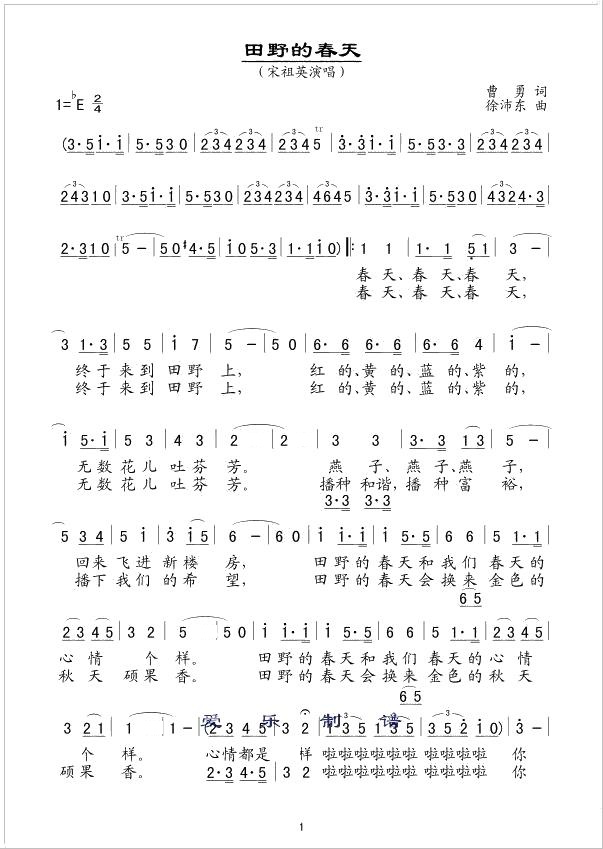 田野的春天
（宋祖英演唱）
曹 勇 词
1=♭E 2/4
徐沛东 曲
(3·5i·i | 5·530 | 234234 | 2345 | 3·33i·i | 5·53·3 | 234234 | 5·530 |
24310 | 3·5i·i | 5·530 | 234234 | 4645 | 3·33i·i | 5·530 | 4324·3 |
2·310 | 5 － | 50#4·5 | i05·3 | 1·1i0) ‖: 1 1 | 1· 1 51 | 3 － |
春 天、春 天、春 天，
春 天、春 天、春 天，
3 1·3 | 5 5 | i 7 | 5 － | 5 0 | 6· 6 6· 6 | 6· 6 4 | i － |
终于 来 到 田 野 上， 红 的、黄 的、蓝 的、紫 的，
终于 来 到 田 野 上， 红 的、黄 的、蓝 的、紫 的，
i 5·i | 5 3 | 4 3 | 2 | 2 － | 3 3 | 3·3 13 | 5 － |
无 数 花 儿 吐 芬 芳。 燕 子、燕 子、燕 子，
无 数 花 儿 吐 芬 芳。 播种 和谐，播 种 富 裕，
3·3 3·3
5 34 | 5 i | 3 i5 | 6 － | 60 | i i·i | i 5·5 | 6 6 | 5 1·1 |
回来 飞进 新楼 房， 田野的 春天和 我们 春天的
播下 我们 的希 望， 田野的 春天会 换来 金色的
6 5
23 45 | 3 2 | 5 | 50 | i i·i | i 5·5 | 6 6 | 5 1·1 | 23 45 |
心 情 个 样。 田野的 春天和 我们 春天的 心 情
秋 天 硕果 香。 田野的 春天会 换来 金色的 秋 天
6 5
爱 乐 制 谱
3 21 | 1 | 1 － | (2·3 45 | 3 2 | i35135 | 352·i0) | 3 － |
个 样。 心情都是 样 啦啦啦啦 啦啦啦啦 你
硕果 香。 2·3 4·5 | 3 2 | 啦啦啦啦 啦啦啦啦 你
1